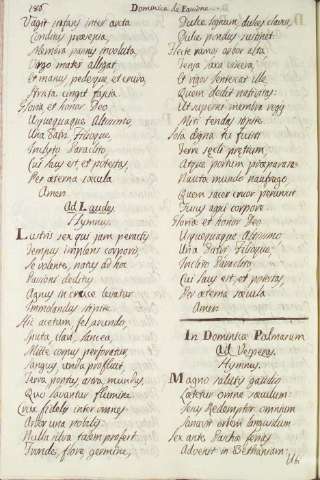 196
Dominica de Passione.
Vagit infans inter arcta
Conditus præsepia,
Membra pannis involuta,
Virgo mater alligat,
Et manus pedesque et crura,
Stricta cingit fascia.
Gloria et honor Deo
Usquequaque Altissimo,
Una Patri Filioque,
Inclyto Paraclito
Cui laus est, et potestas,
Per æterna sæcula
Amen.
Ad Laudes
Hymnus.
Lustris sex qui jam peractis
Tempus implens corporis,
Se volente, natus ad hoc
Passioni deditus
Agnus in cruce levatur
Immolandus stipite.
Hic acetum, fel, arundo,
Sputa, clavi, lancea,
Mitte corpus perforatur,
Sanguis, unda profluit,
Terra, pontus, astra, mundus,
Quo lavantur flumine
Crux fidelis inter omnes
Arbor una nobilis:
Nulla silva talem profert
Fronde, flore, germine,
Dulce lignum, dulces clavos,
Dulce pondus sustinet.
Flecte ramos arbor alta,
Tensa laxa viscera,
Et rigor lentescat ille
Quem dedit nativitas:
Ut superni membra regis
Miti tendas stipite.
Sola digna tu fuisti
Ferre sæcli pretium,
Atque portum præparare
Nauta mundo naufrago,
Quem sacer cruor perunxit
Fusus agni corpore.
Gloria et honor Deo
Usquequaque Altissimo
Una Patri Filioque,
Inclito Paraclito
Cui laus est, et potestas,
Per æterna sæcula
Amen.
In Dominica Palmarum
Ad Vesperas
Hymnus.
Magno salutis gaudio
Lætetur omne sæculum
Jesus Redemptor omnium
Sanavit orbem languidum
Sex ante Paschæ ferias
Advenit in Bethaniam:
Ubi